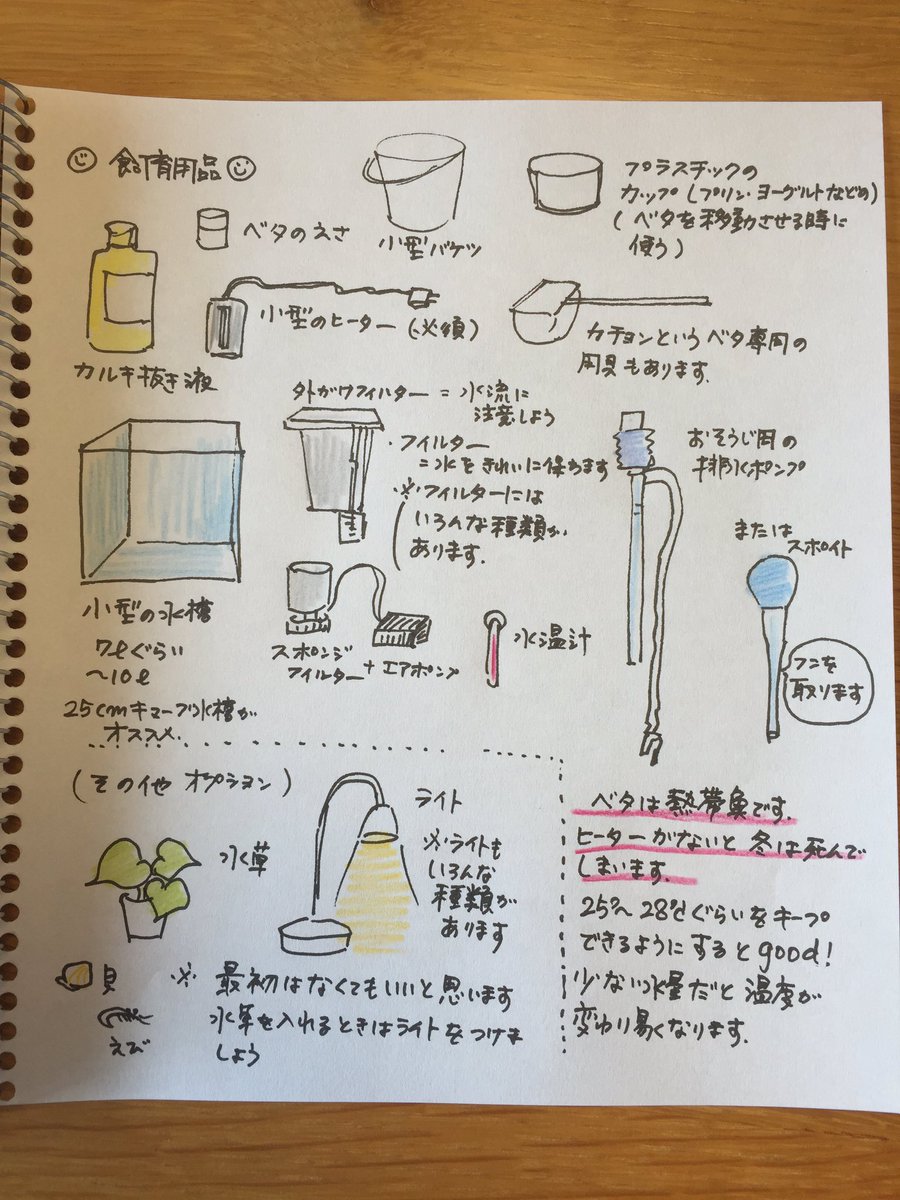 飼育用品
ベタのえさ
小型バケツ
プラスチックの
カップ（プリン・ヨーグルトなどの）
（ベタを移動させる時に
使う）
カルキ抜き液
小型のヒーター（必須）
カチョンというベタ専用の
用具もあります.
外がけフィルター = 水流に
注意しよう
・フィルター
=水をきれいに保ちます
※フィルターには
いろんな種類が
あります.
おそうじ用の
排水ポンプ
または
スポイト
フンを
取ります
小型の水槽
7ℓぐらい
〜10ℓ
25cmキューブ水槽が
オススメ.
スポンジ
フィルター + エアポンプ
水温計
（その他 オプション）
水草
ライト
※ライトも
いろんな
種類が
あります
貝
えび
※ 最初はなくてもいいと思います
水草を入れるときはライトをつけま
しょう
ベタは熱帯魚です.
ヒーターがないと冬は死んで
しまいます.
25°〜28℃ぐらいをキープ
できるようにするとgood!
少ない水量だと温度が
変わり易くなります.